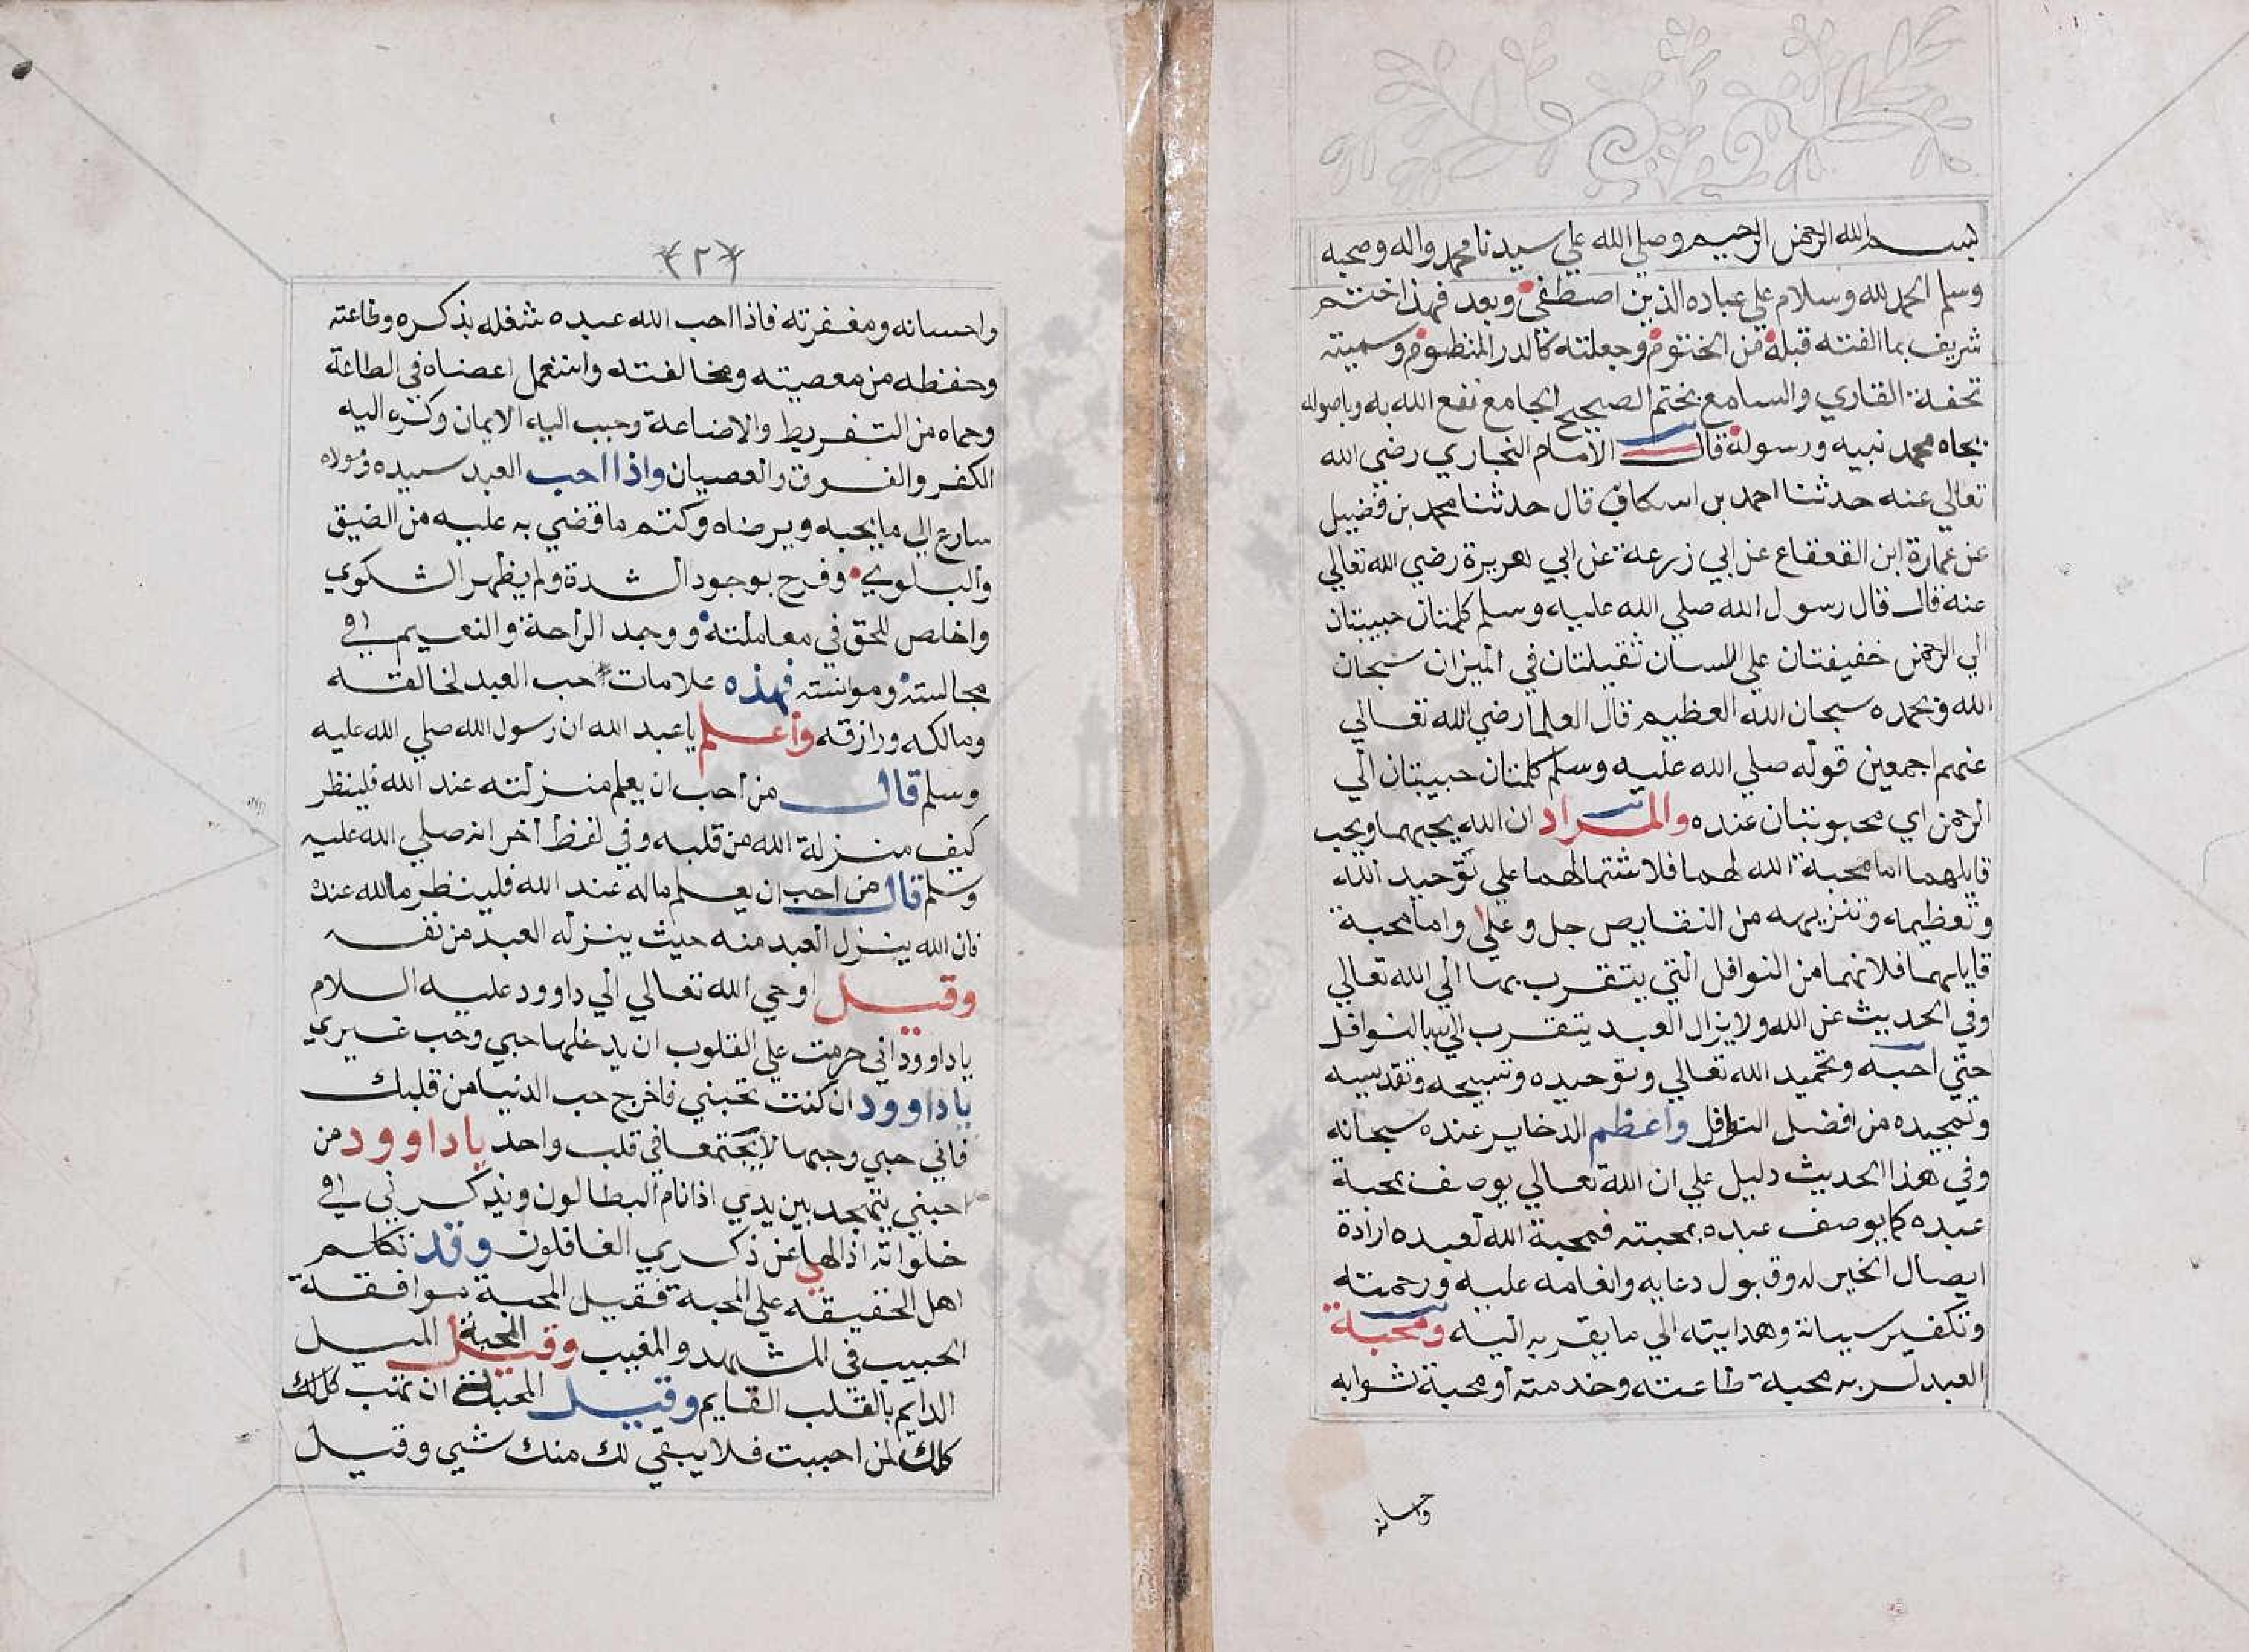 بسم الله الرحمن الرحيم وصلي الله علي سيدنا محمد واله وصحبه
وسلم الحمد لله وسلام علي عباده الذين اصطفي وبعد فهذا ختم
شريف بما الفته قبله من الختوم وجعلته كالدر المنظوم وسميته
تحفة القاري والسامع بختم الصحيح الجامع نفع الله به وباصوله
بجاه محمد نبيه ورسوله قال الامام البخاري رضي الله
تعالي عنه حدثنا احمد بن اسكاف قال حدثنا محمد بن فضيل
عن عمارة ابن القعقاع عن ابي زرعة عن ابي هريرة رضي الله تعالي
عنه قال قال رسول الله صلي الله عليه وسلم كلمتان حبيبتان
الي الرحمن خفيفتان علي اللسان ثقيلتان في الميزان سبحان
الله وبحمده سبحان الله العظيم قال العلما رضي الله تعالي
عنهم اجمعين قوله صلي الله عليه وسلم كلمتان حبيبتان الي
الرحمن اي محبوبتان عنده والمراد ان الله يحبهما ويحب
قايلهما اما محبة الله لهما فلاشتمالهما علي توحيد الله
وتعظيمه وتنزيهه من النقايص جل وعلا واما محبة
قايلهما فلانهما من النوافل التي يتقرب بها الي الله تعالي
وفي الحديث عن الله ولا يزال العبد يتقرب الي بالنوافل
حتي احبه وتحميد الله تعالي وتوحيده وتسبيحه وتقديسه
وتمجيده من افضل النوافل واعظم الدخاير عنده سبحانه
وفي هذا الحديث دليل علي ان الله تعالي يوصف بمحبة
عبده كما يوصف عبده بمحبته فمحبة الله لعبده ارادة
ايصال الخير له وقبول دعايه وانعامه عليه ورحمته
وتكفير سياته وهدايته الي ما يقربه اليه ومحبة
العبد لربه محبة طاعته وخدمته او محبة ثوابه
واحسانه
٢
واحسانه ومغفرته فاذا احب الله عبده شغله بذكره وطاعته
وحفظه من معصيته ومخالفته واستعمل اعضاه في الطاعة
وحماه من التفريط والاضاعة وحبب اليه الايمان وكره اليه
الكفر والفسوق والعصيان واذا احب العبد سيده ومولاه
سارع الي ما يحبه ويرضاه وكتم ما قضي به عليه من الضيق
والبلوي وفرح بوجود الشدة ولم يظهر الشكوي
واخلص للحق في معاملته ووجد الراحة والنعيم في
مجالسته وموانسته فهذه علامات حب العبد لخالقه
ومالكه ورازقه واعلم يا عبد الله ان رسول الله صلي الله عليه
وسلم قال من احب ان يعلم منزلته عند الله فلينظر
كيف منزلة الله من قلبه وفي لفظ اخر انه صلي الله عليه
وسلم قال من احب ان يعلم ماله عند الله فلينظر مالله عنده
فان الله ينزل العبد منه حيث ينزله العبد من نفسه
وقيل اوحي الله تعالي الي داوود عليه السلام
يا داوود اني حرمت علي القلوب ان يدخلها حبي وحب غيري
يا داوود ان كنت تحبني فاخرج حب الدنيا من قلبك
فاني حبي وحبها لا يجتمعا في قلب واحد يا داوود من
احبني يتهجد بين يدي اذا نام البطالون ويذكرني في
خلواته اذا لها عن ذكري الغافلون وقد تكلم
اهل الحقيقة علي المحبة فقيل المحبة موافقة
الحبيب في المشهد والمغيب وقيل المحبة الميل
الدايم بالقلب القايم وقيل المحبة ان تهب كلك
كلك لمن احببت فلا يبقي لك منك شيي وقيل